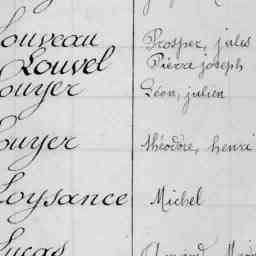 Louveau Prosper, jules
Louvel Pierre joseph
Louyer Léon, julien
Louyer théodore, henri
Loysance Michel
Lucas